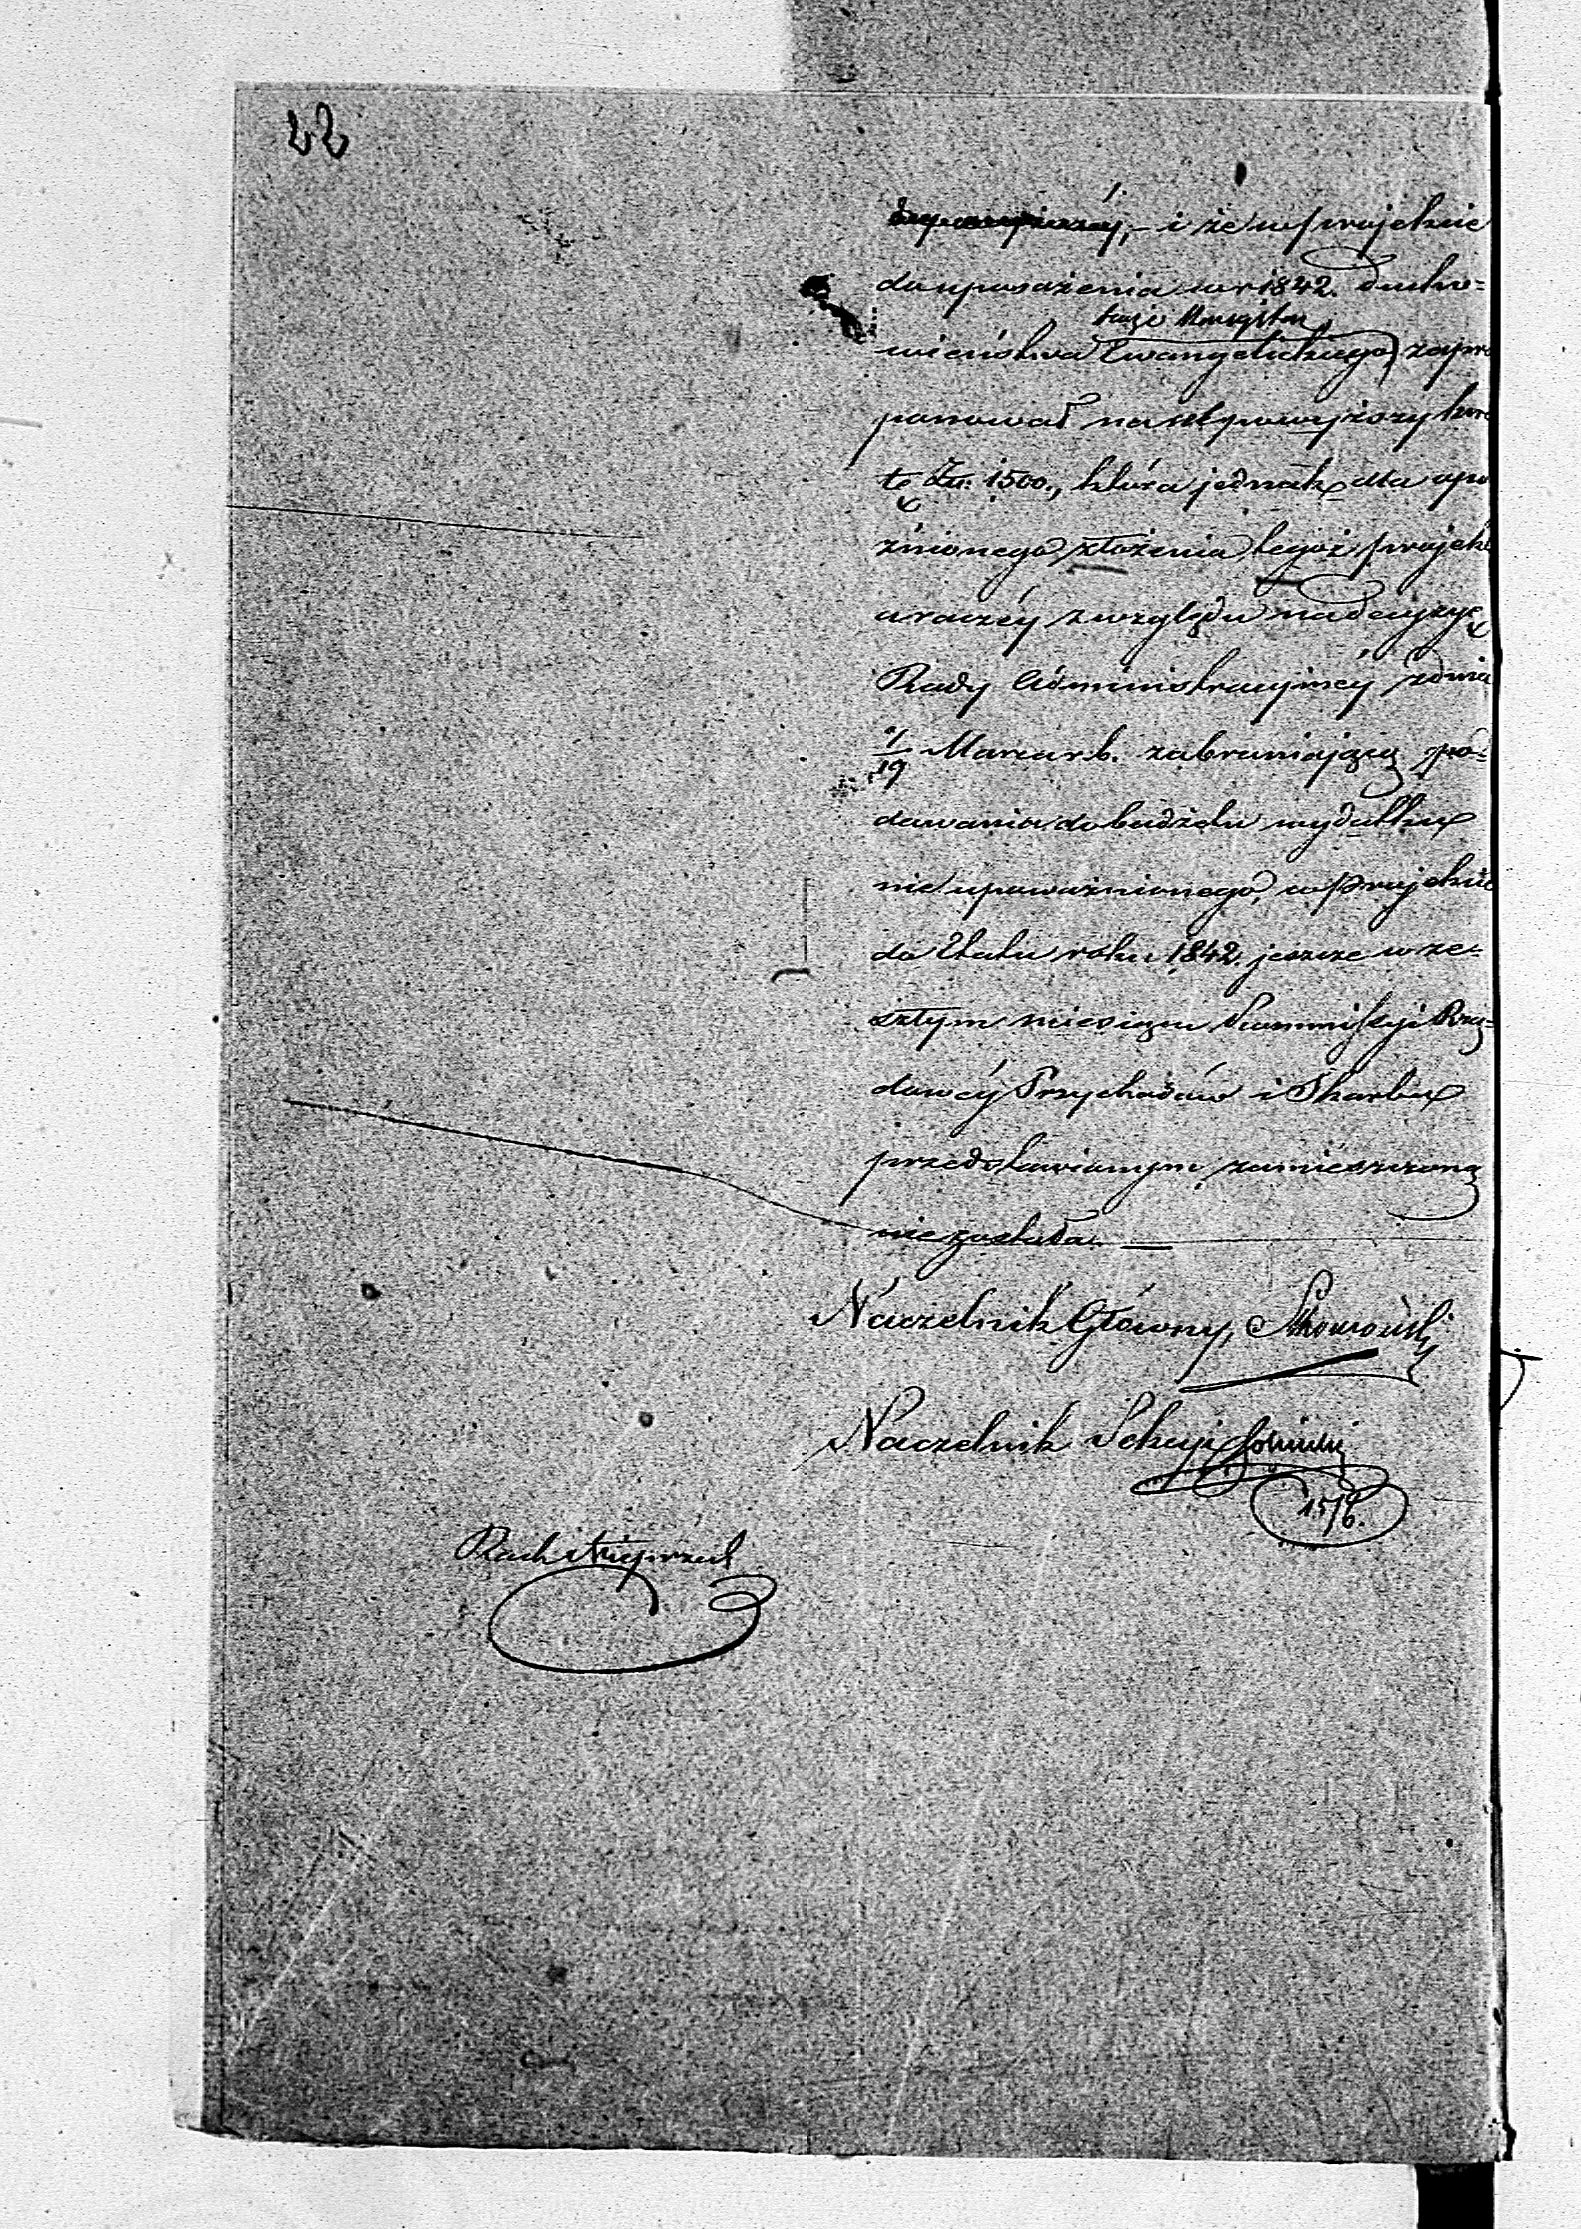 22
i że w projekcie
do uposażenia w r. 1842. Ducho=
wieństwa Ewangelickiego, zapro
ponował na cel powyższy kwo
tę Złr. 1500., która jednak dla opó
źnionego złożenia tegoż projek
a raczéj z względu na decyzyę
Rady Administracyjnéj z dnia
/19 Marca r. b. zabraniającą po=
dawania do budżetu wydatku
nieupoważnionego, w Projekcie
do Etatu roku 1842. jeszcze w ze=
szłym miesiącu Kommissyi Rzą=
dowéj Przychodów i Skarbu
przedstawionym, zamieszczoną
nie została.
Naczelnik Główny,
Naczelnik Sekcyi
15/6.